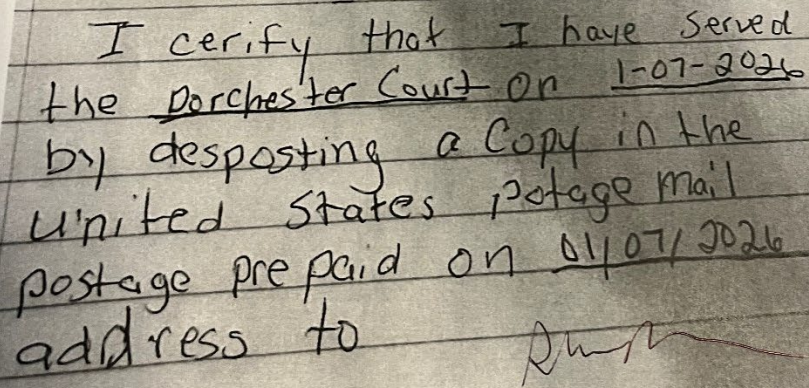 I cerify that I have served
the Dorchester Court on 1-07-2026
by desposting a Copy in the
United States potage mail
postage prepaid on 01/07/2026
address to